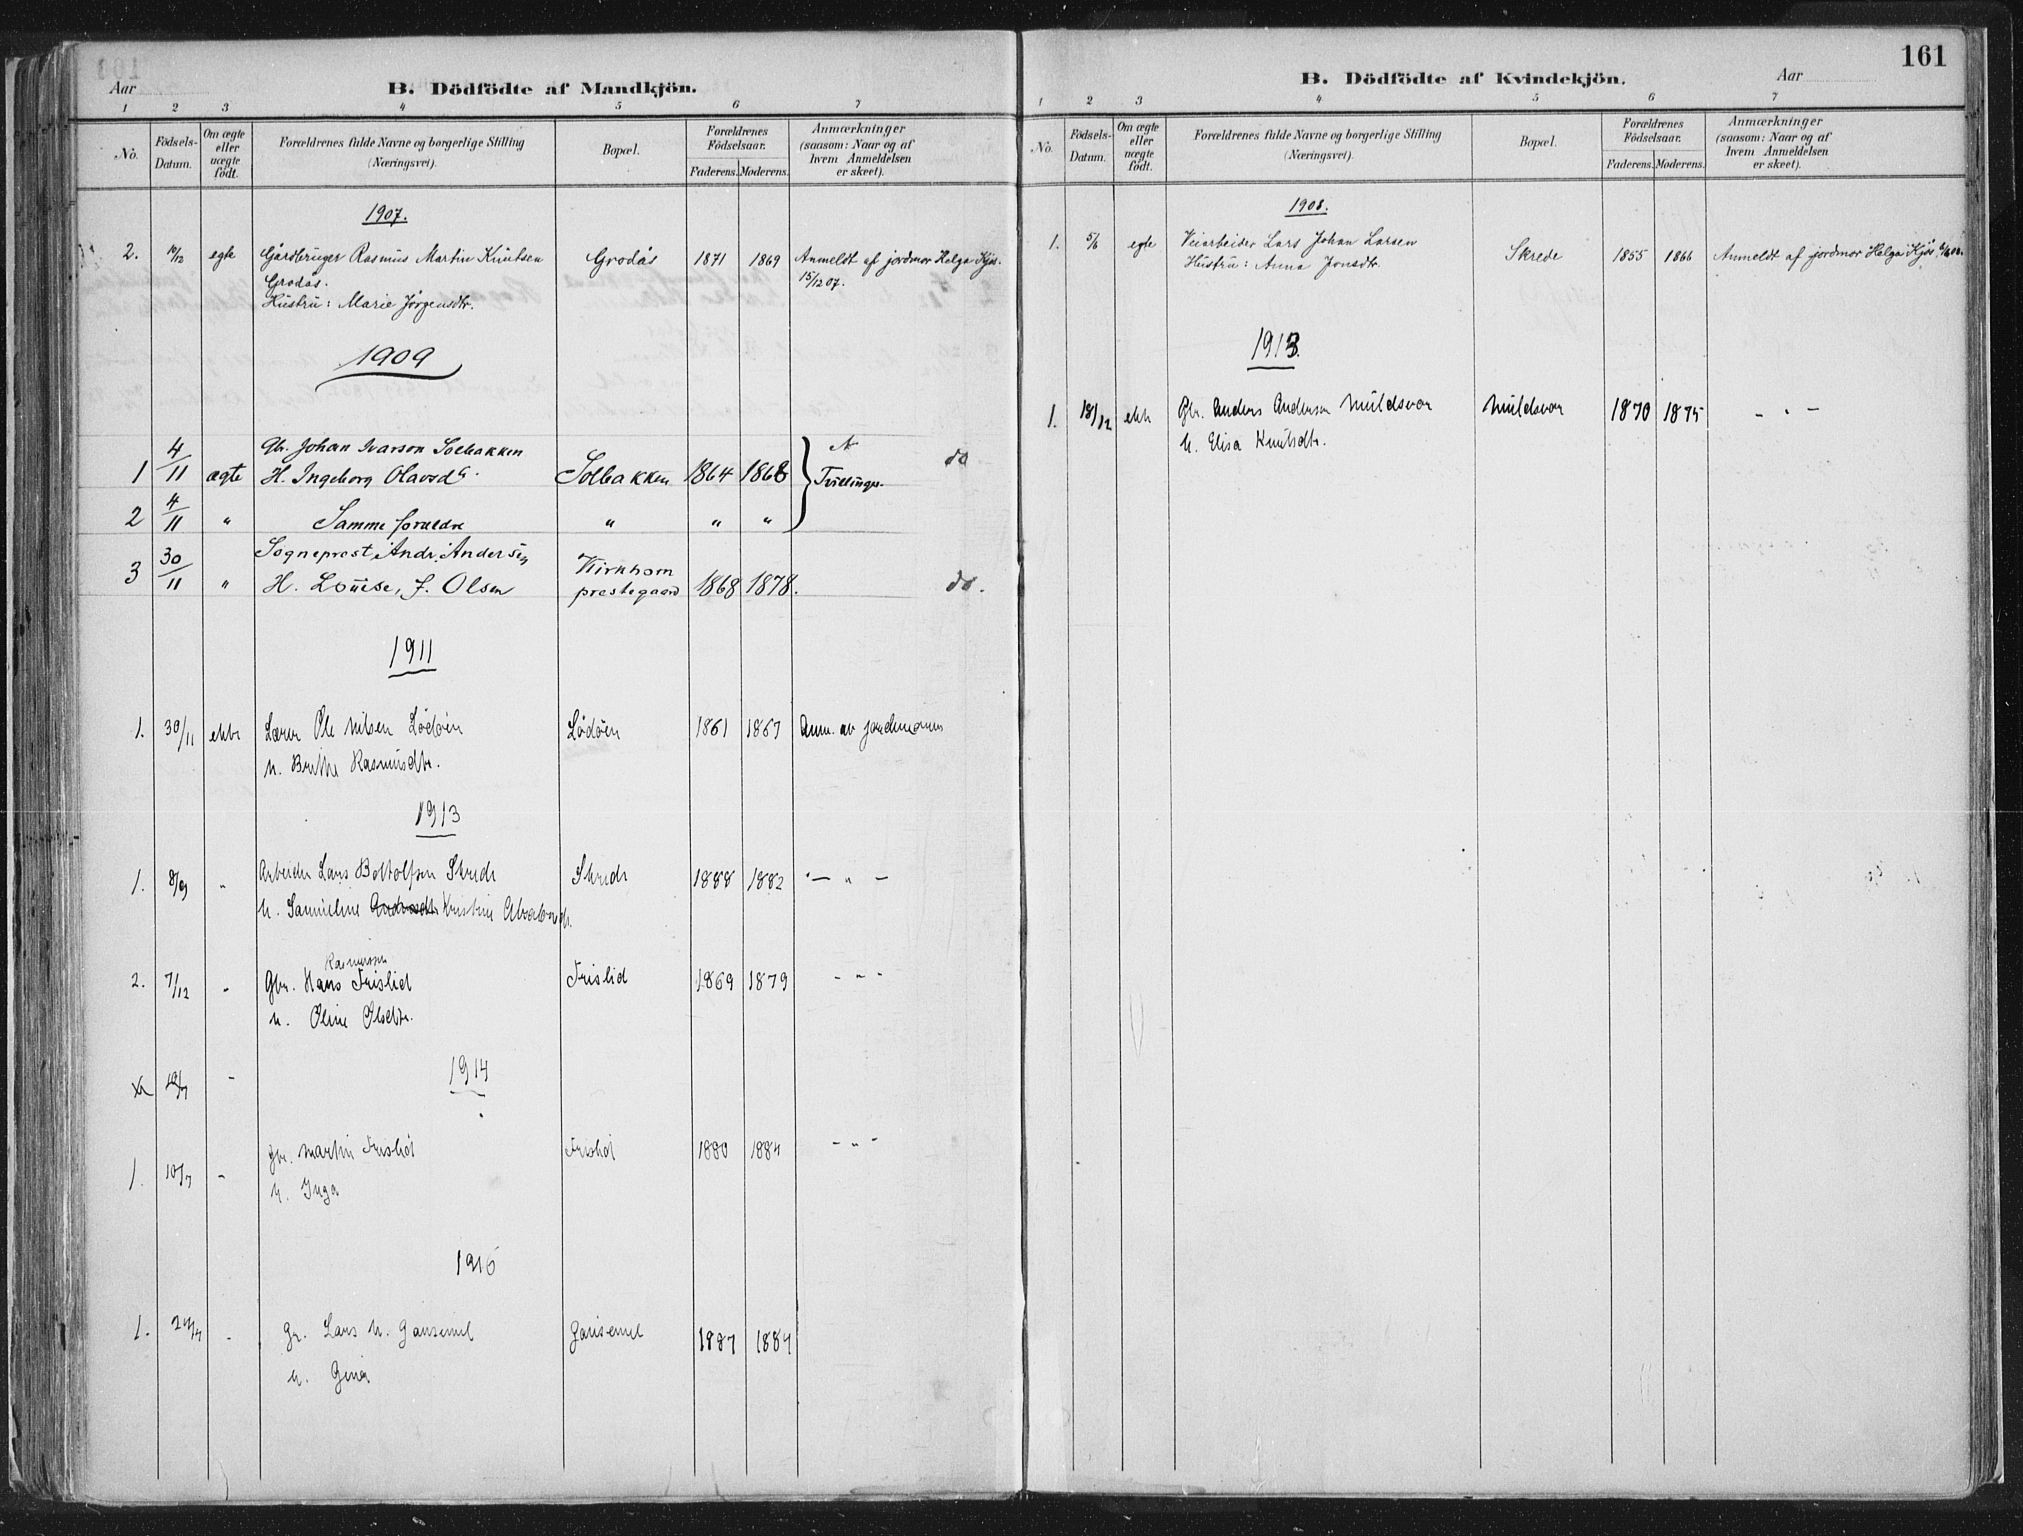 B. Dödfödte af Mandkjön.
Aar
1 2 3 4 5 6 7
No. Födsels-Datum. Om ægte eller uægte födt. Forældrenes fulde Navne og borgerlige Stilling (Næringsvei). Bopæl. Forældrenes Födselsaar. Faderens. Moderens. Anmærkninger (saasom: Naar og af hvem Anmeldelsen er skeet).
1907.
2. 10/12 egte Gårdbruger Rasmus Martin Knutsen Grodås 1871 1869 Anmeldt af jordmor Helga Kjøs.
Grodås. 15/12 07.
Hustru: Marie Jørgensdtr.
1909
4/11 Gbr. Johan Ivarson Solbakken
1 ægte H. Ingeborg Olavsd. Solbakken 1864 1868 Tvillinger. do
2 4/11 " Samme foreldre " " "
30/11 Sogneprest Andr. Andersen Kirkhorn
3 " H. Louise, J. Olsen prestegaard 1868 1878. do.
1911
1. 30/11 ekte Lærer Ole Nilsen Lødøen Lødøen 1861 1867 Anm. av jordmoren
h. Brithe Rasmusdtr.
1913
1. 8/9 " Arbeider Lars Bottolfsen Skrede Skrede 1888 1882 - " -
h. Samueline Kristine
Rasmussen
2. 7/12 " Gbr. Hans Frislid Frislid 1869 1879 - " -
h. Oline Olsdtr.
1914
Gbr. Martin Frislid Frislid 1880 1884 - " -
1. 10/7 " h. Inga
1916
1. 24/4 " Gr. Lars N. Gausemel Gausemel 1887 1884
h. Gina
161
B. Dödfödte af Kvindekjön.
Aar
1 2 3 4 5 6 7
No. Födsels-Datum. Om ægte eller uægte födt. Forældrenes fulde Navne og borgerlige Stilling (Næringsvei). Bopæl. Forældrenes Födselsaar. Faderens. Moderens. Anmærkninger (saasom: Naar og af hvem Anmeldelsen er skeet).
1908.
1. 5/6 egte Veiarbeider Lars Johan Larsen Skrede 1855 1866 Anmeldt af jordmor Helga Kjøs
Hustru: Anna Jonsdtr.
1913.
1. 18/12 ekte Gbr. Anders Andersen Muldsvor Muldsvor 1870 1875 - " -
h. Elisa Knutsdtr.